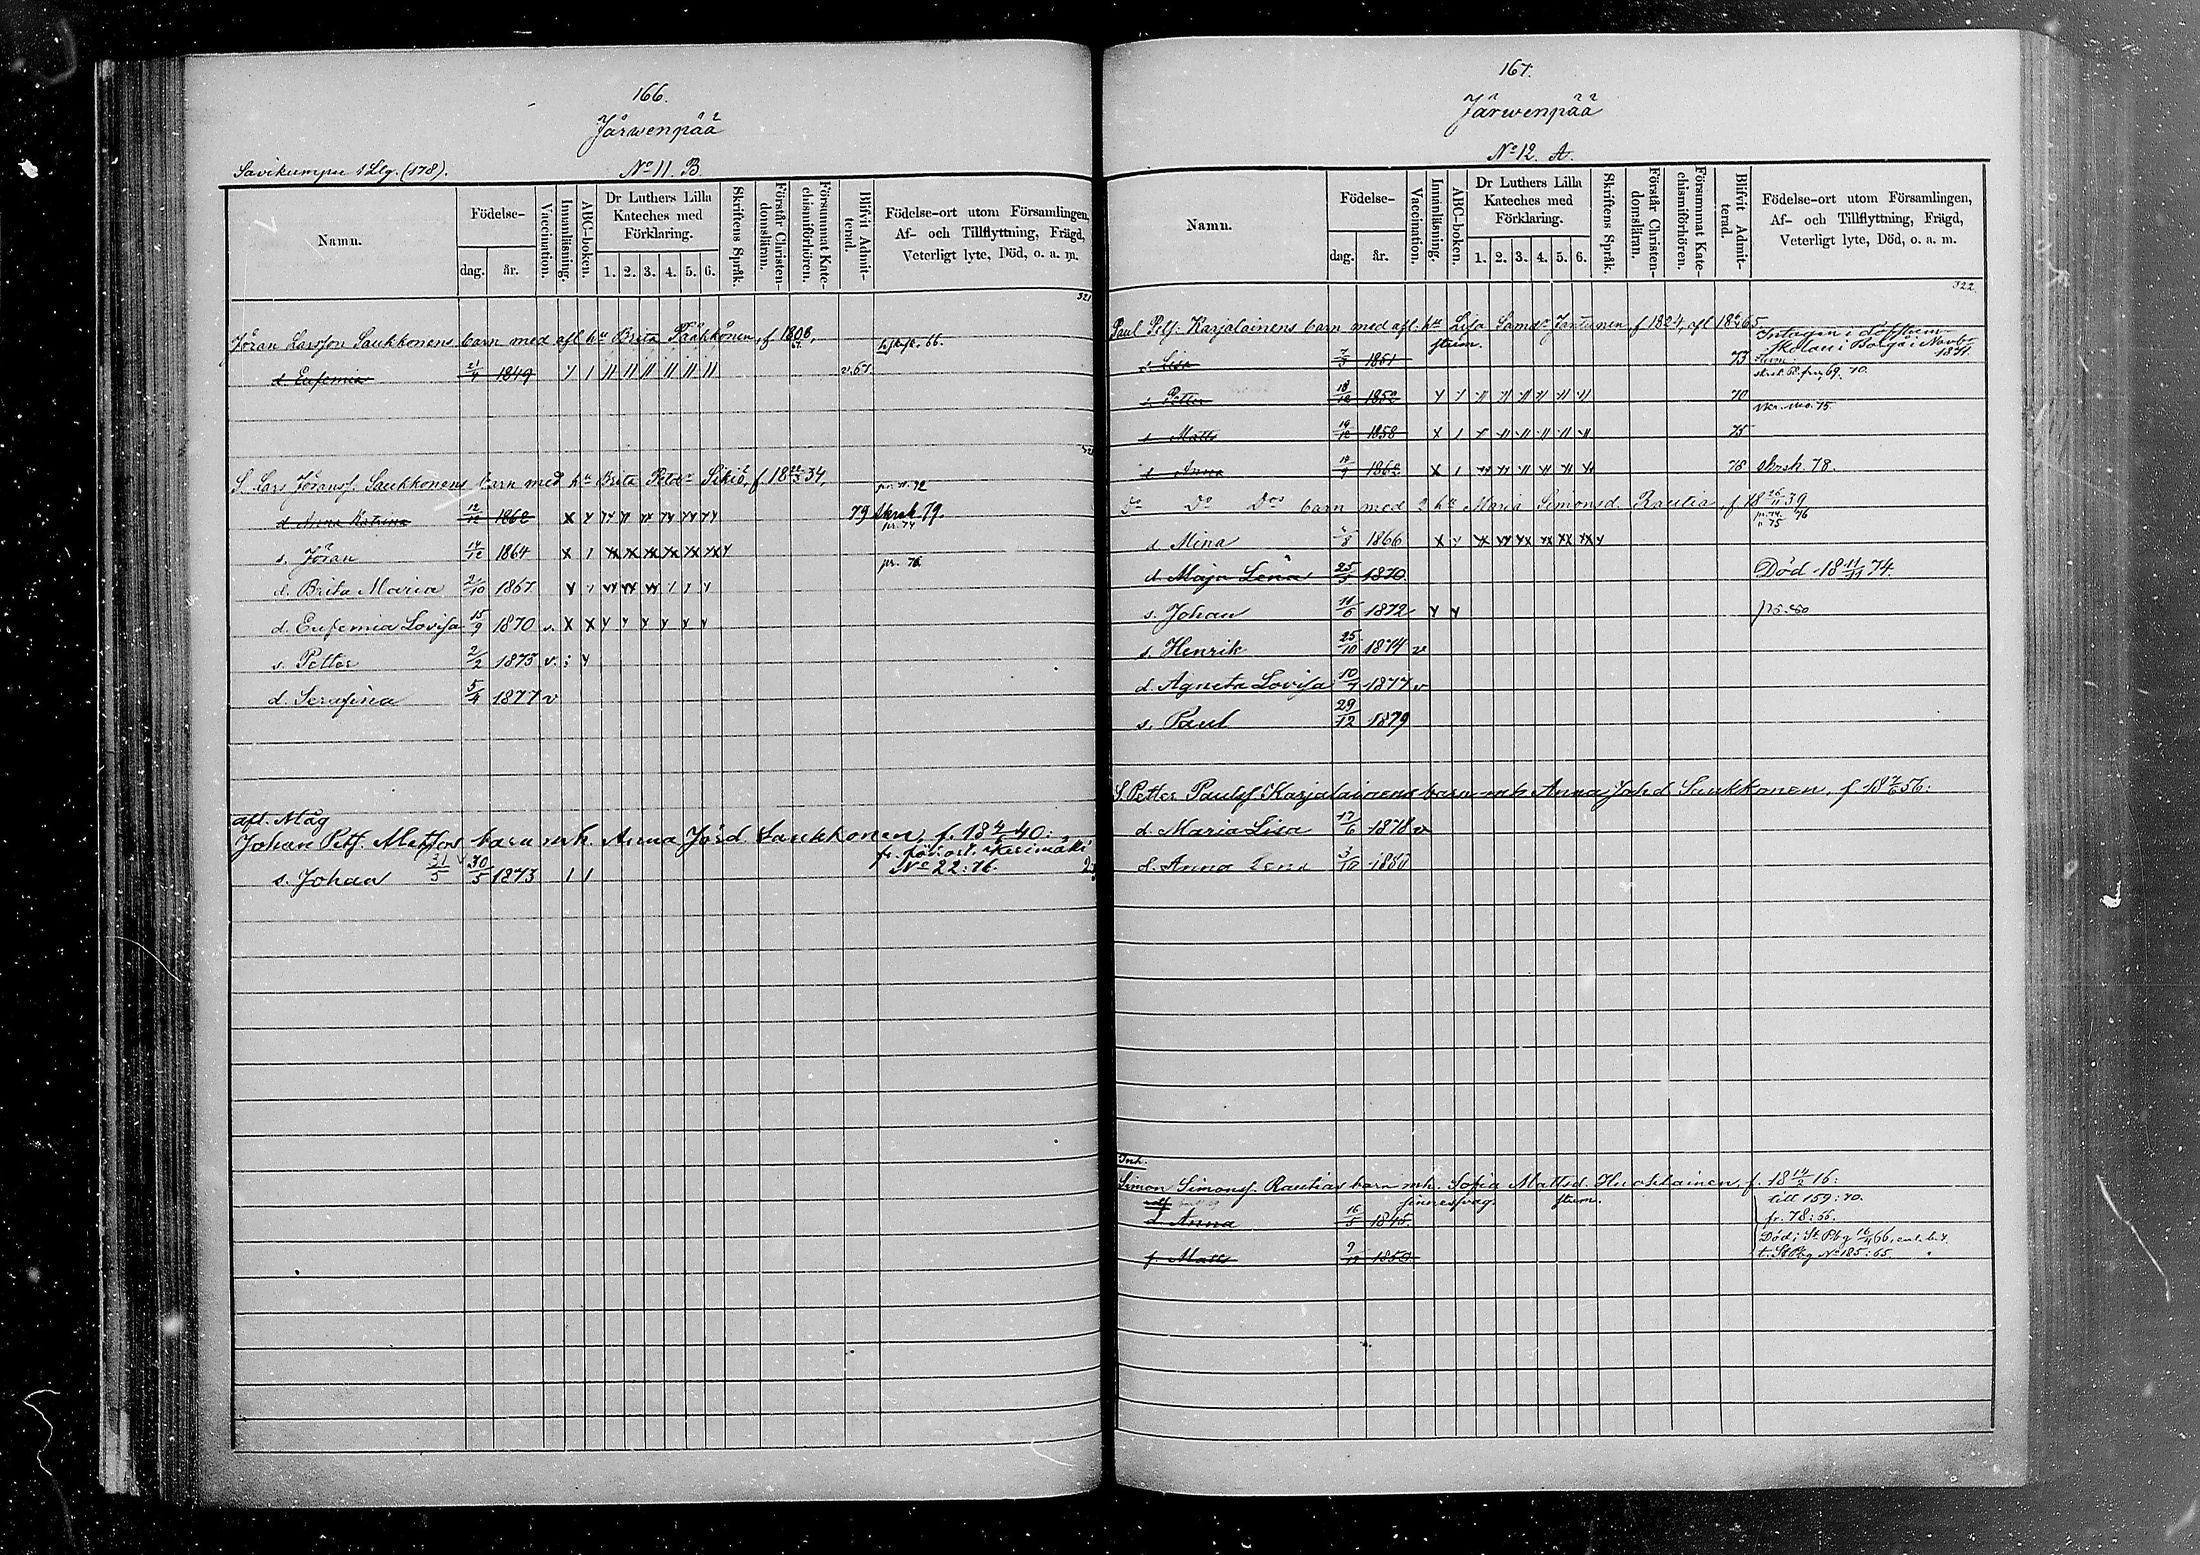 166.
Järwenpää
Savikumpu 1 Llg. (178).
No 11. B.
Namn.
Födelse-
dag.
år.
Vaccination.
Innanläsning.
ABC-boken.
Dr Luthers Lilla Kateches med Förklaring.
1. 2. 3. 4. 5. 6.
Skriftens Språk.
Förstår Christendomsläran.
Försummat Katechismiförhören.
Blifvit Admitterad.
Födelse-ort utom Församlingen,
Af- och Tillflyttning, Frägd,
Veterligt lyte, Död, o. a. m.
321
Jöran Larsson Saukkonens barn med afl hu Brita Pääkkönen, f 1806,
d. Eufemia 2/4 1849 v. 67.
S. Lars Jöransf. Saukkonens barn med hu Brita Petersd Sikiö, f 18 22/3 34,
pr. n. 72
d. Anna Katrina 12/12 1862 79 Skrsk. 79.
pr. 74
s. Jöran 14/12 1864
pr. 76
d. Brita Maria 2/10 1867
d. Eufemia Lovisa 15/9 1870 v.
s. Petter 2/2 1873 v.
d. Serafina 5/4 1877 v
afl. Måg
Johan Petf. Mattfors barn mh. Anna Jörd. Saukkonen, f. 18 4/4 40:
fr. förs. ort. Kerimäki
s. Johan 31/5 30/5 1873 No 22: 76.
167.
Järwenpää
No 12. A.
Namn.
Födelse-
dag.
år.
Vaccination.
Innanläsning.
ABC-boken.
Dr Luthers Lilla Kateches med Förklaring.
1. 2. 3. 4. 5. 6.
Skriftens Språk.
Förstår Christendomsläran.
Försummat Katechismiförhören.
Blifvit Admitterad.
Födelse-ort utom Församlingen,
Af- och Tillflyttning, Frägd,
Veterligt lyte, Död, o. a. m.
322.
Paul Petf. Karjalainens barn med afl. hu Lisa Samdr Jantunen, f 1824, afl 1865
stum.
Intagen i döfstum-
skolan i Borgå i Novbr
1871.
d. Lisa 7/3 1851 73
s. Petter 18/12 1852 70
skr. 75
s. Matts 19/12 1858 75
d. Anna 14/9 1862 78 skrsk. 78.
Do Do Dos barn med 2 hu Maria Simonsd. Rautia, f 18 26/11 39
d. Mina 1866
d. Maja Lena 25/3 1870 Död 18 11/11 74.
s. Johan 11/6 1872 pr. 80
s. Henrik 25/10 1874 v
d. Agneta Lovisa 10/7 1877 v
s. Paul 29/12 1879
S. Petter Paulsf. Karjalainens barn mh Anna Johd Saukkonen, f 18 7/6 56:
d. Maria Lisa 17/6 1878 v
d. Anna Lena 3/10 1880
Inh.
Simon Simonsf. Rautias barn mh. Sofia Mattsd. Huohlainen, f. 18 14/2 16:
sinnessvag. stum.
till 159: 70.
d. Anna 16/5 1845. fr. 78: 56.
Död i St Pbg 16/4 66, enl. bet.
s. Matts 9/12 1850 t. St Pbg No 185: 65.